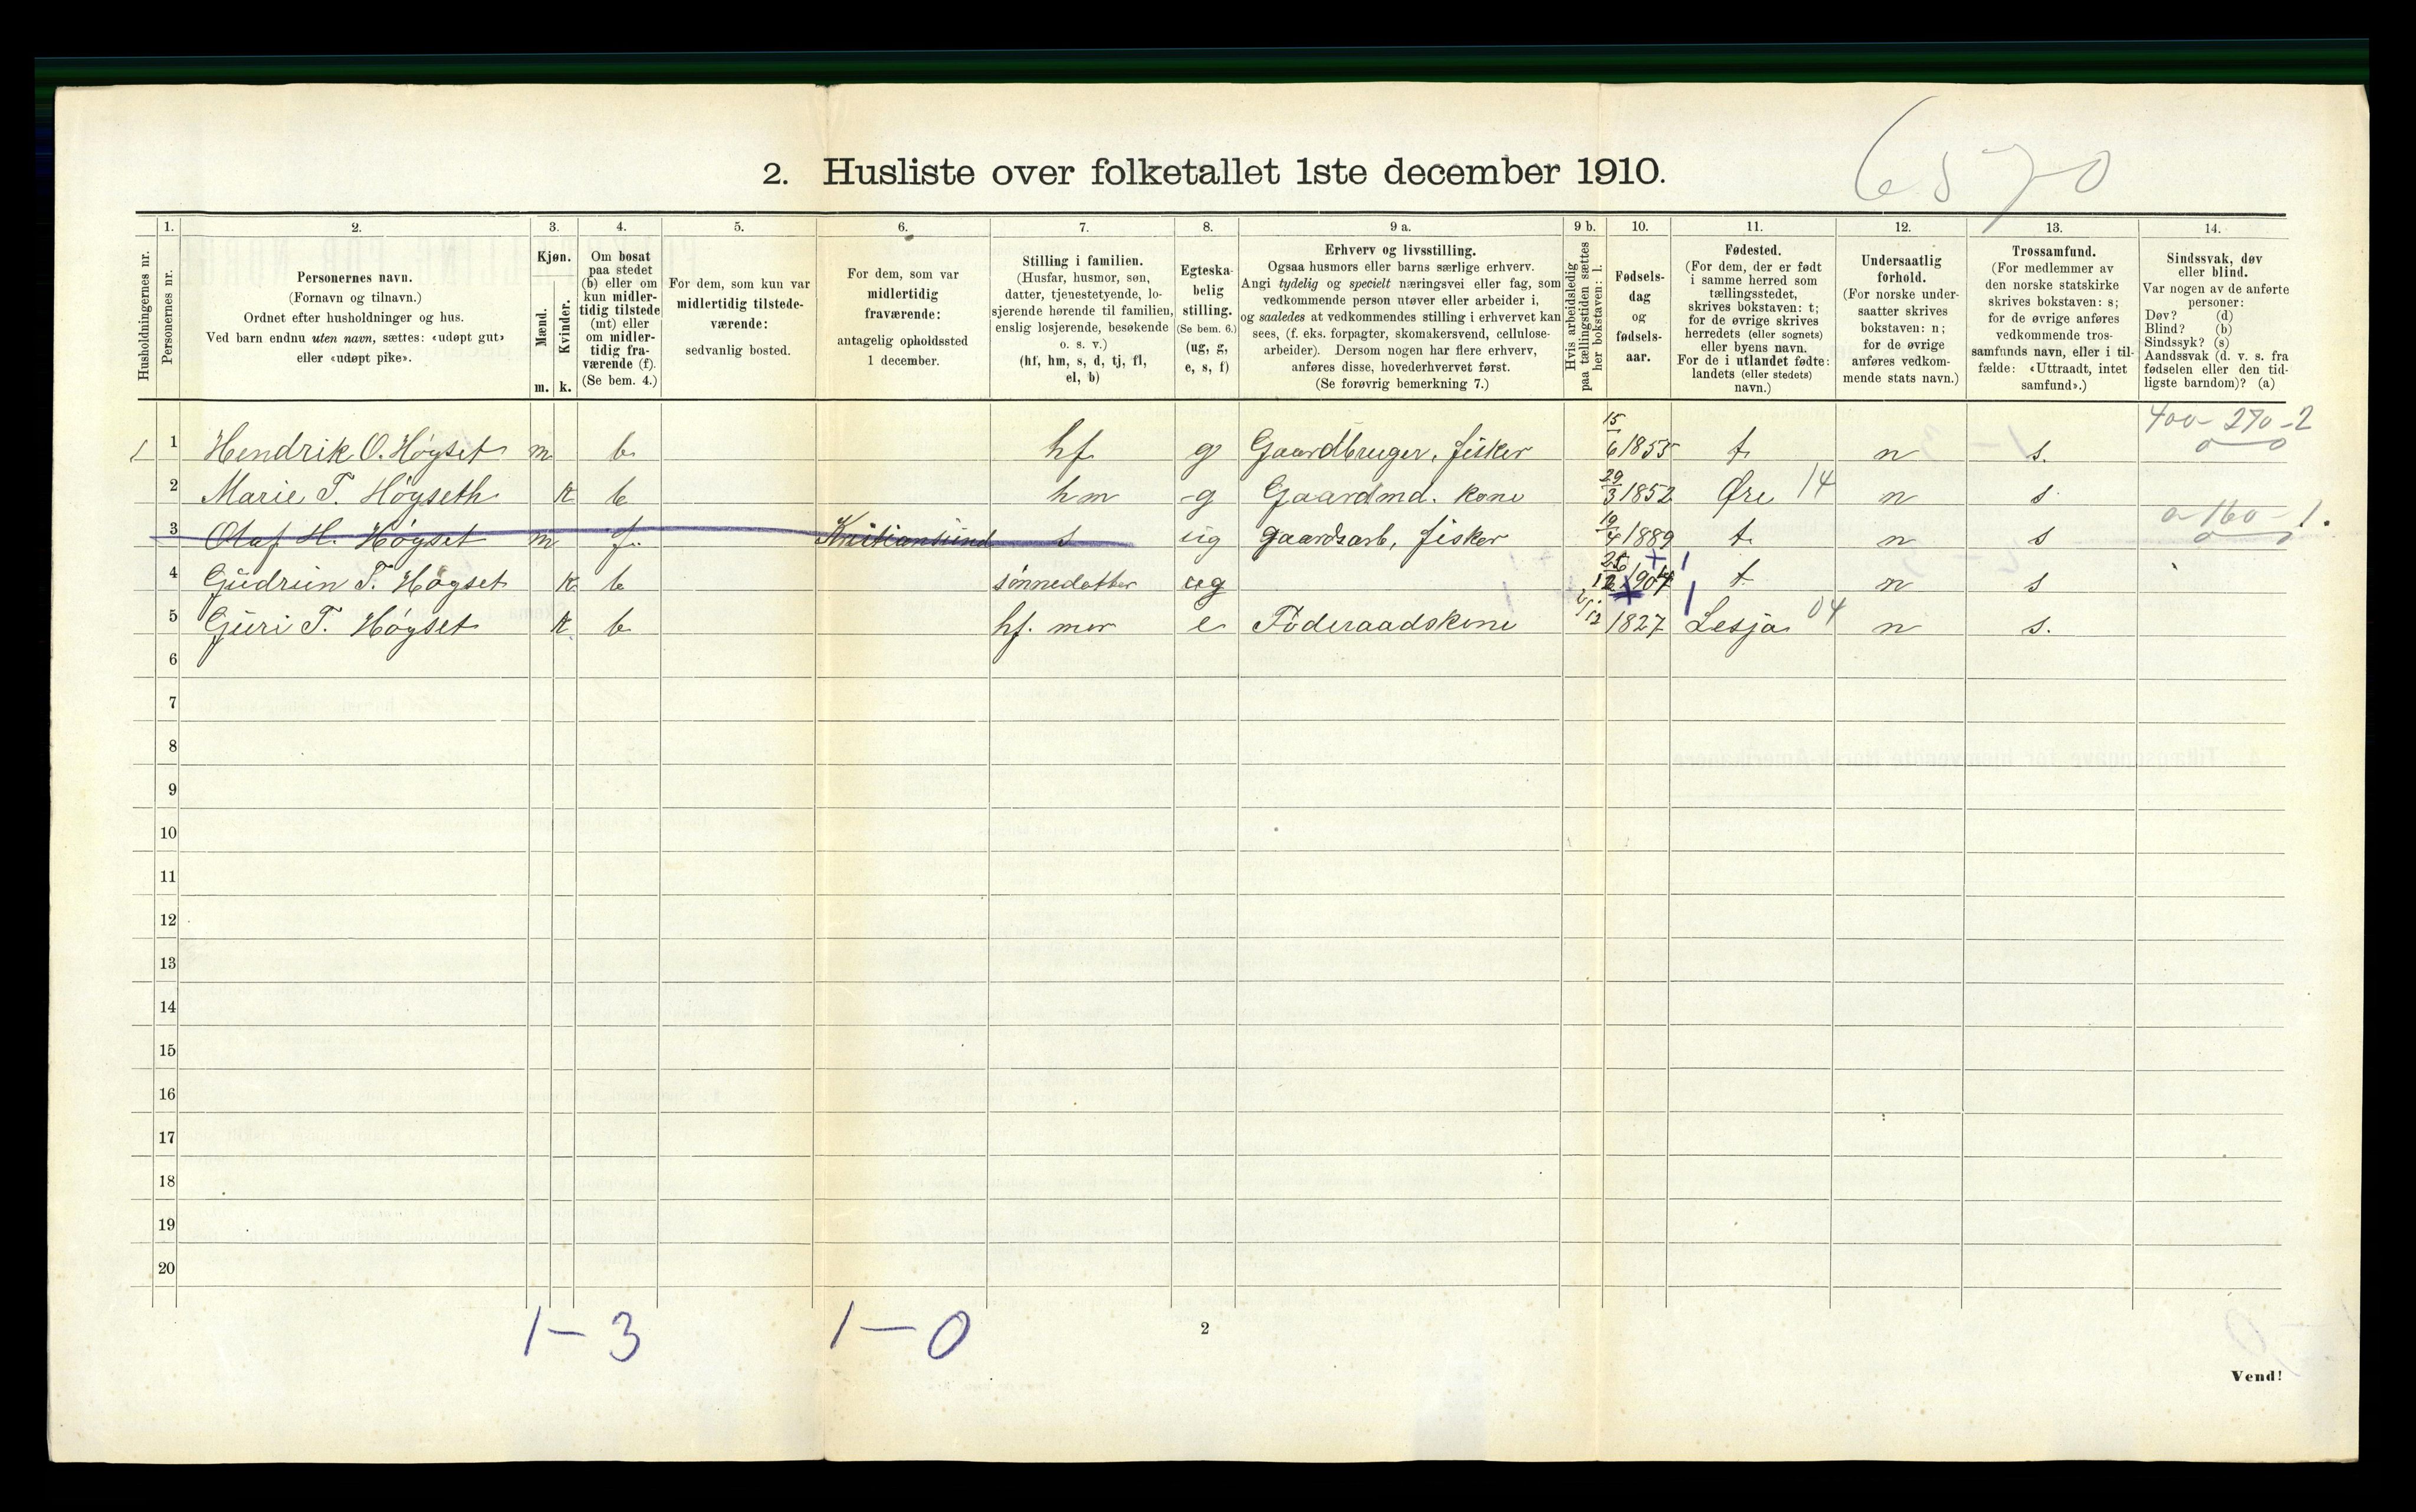 6570
2. Husliste over folketallet 1ste december 1910.
Husholdningernes nr.
1. Personernes nr.
2. Personernes navn.
(Fornavn og tilnavn.)
Ordnet efter husholdninger og hus.
Ved barn endnu uten navn, sættes: «udøpt gut»
eller «udøpt pike».
3. Kjøn.
Mænd. m.
Kvinder. k.
4. Om bosat
paa stedet
(b) eller om
kun midler-
tidig tilstede
(mt) eller
om midler-
tidig fra-
værende (f).
(Se bem. 4.)
5. For dem, som kun var
midlertidig tilstede-
værende:
sedvanlig bosted.
6. For dem, som var
midlertidig
fraværende:
antagelig opholdssted
1 december.
7. Stilling i familien.
(Husfar, husmor, søn,
datter, tjenestetyende, lo-
sjerende hørende til familien,
enslig losjerende, besøkende
o. s. v.)
(hf, hm, s, d, tj, fl,
el, b)
8. Egteska-
belig
stilling.
(Se bem. 6.)
(ug, g,
e, s, f)
9 a. Erhverv og livsstilling.
Ogsaa husmors eller barns særlige erhverv.
Angi tydelig og specielt næringsvei eller fag, som
vedkommende person utøver eller arbeider i,
og saaledes at vedkommendes stilling i erhvervet kan
sees, (f. eks. forpagter, skomakersvend, cellulose-
arbeider). Dersom nogen har flere erhverv,
anføres disse, hovederhvervet først.
(Se forøvrig bemerkning 7.)
9 b. Hvis arbeidsledig
paa tællingstiden sættes
her bokstaven: l.
10. Fødsels-
dag
og
fødsels-
aar.
11. Fødested.
(For dem, der er født
i samme herred som
tællingsstedet,
skrives bokstaven: t;
for de øvrige skrives
herredets (eller sognets)
eller byens navn.
For de i utlandet fødte:
landets (eller stedets)
navn.)
12. Undersaatlig
forhold.
(For norske under-
saatter skrives
bokstaven: n;
for de øvrige
anføres vedkom-
mende stats navn.)
13. Trossamfund.
(For medlemmer av
den norske statskirke
skrives bokstaven: s;
for de øvrige anføres
vedkommende tros-
samfunds navn, eller i til-
fælde: «Uttraadt, intet
samfund».)
14. Sindssvak, døv
eller blind.
Var nogen av de anførte
personer:
Døv? (d)
Blind? (b)
Sindssyk? (s)
Aandssvak (d. v. s. fra
fødselen eller den tid-
ligste barndom)? (a)
1 1 Hendrik O. Høyset m b. hf g Gaardbruger, fisker 15/6 1855 t. n s. 400-270-2
2 Marie T. Høyseth k b hm g Gaardmd. kone 29/3 1852 Øre 14 n s
3 Olaf H. Høyset m f. Kristiansund s ug gaardsarb, fisker 19/4 1889 t. n s 0-160-1.
4 Gudrun T. Høgset k b sønnedatter ug 1907 t n s
5 Guri T. Høyset k b hf. mor e Føderaadskone 1827 Lesja 04 n s.
6
7
8
9
10
11
12
13
14
15
16
17
18
19
20
1-3 1-0
2
Vend!